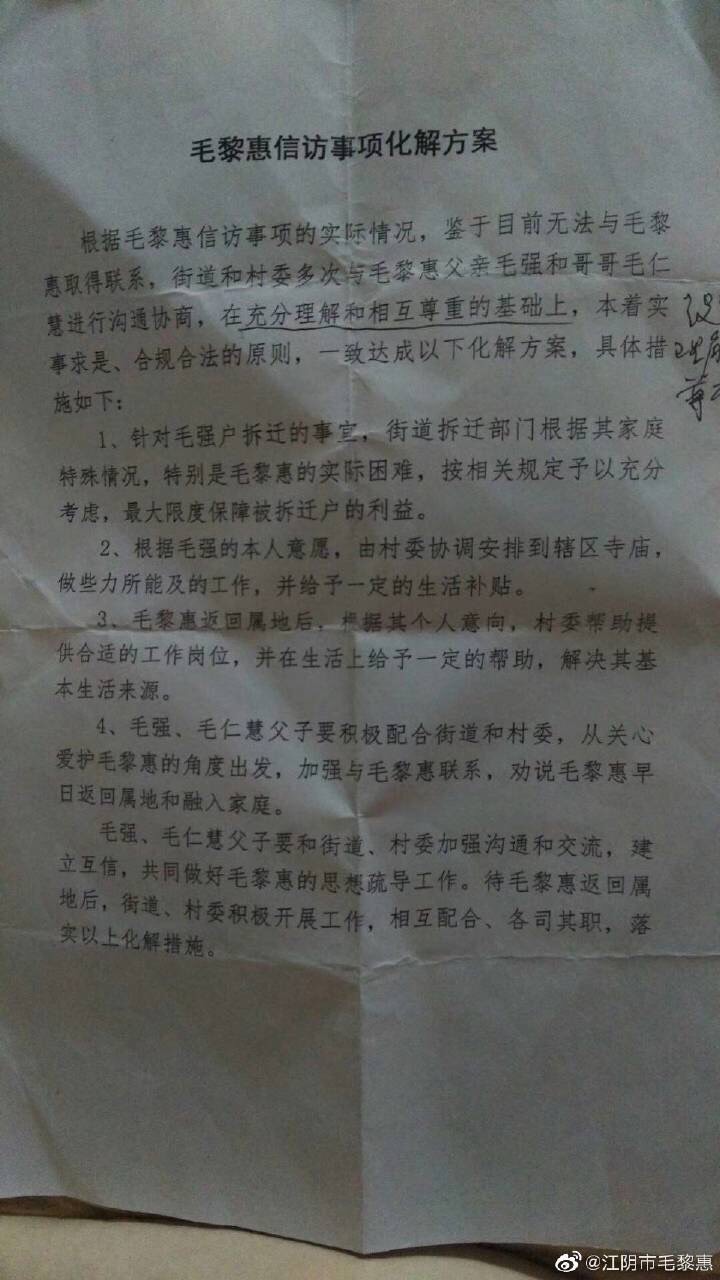 毛黎惠信访事项化解方案
根据毛黎惠信访事项的实际情况，鉴于目前无法与毛黎
惠取得联系，街道和村委多次与毛黎惠父亲毛强和哥哥毛仁
慧进行沟通协商，在充分理解和相互尊重的基础上，本着实
事求是、合规合法的原则，一致达成以下化解方案，具体措
施如下：
1、针对毛强户拆迁的事宜，街道拆迁部门根据其家庭
特殊情况，特别是毛黎惠的实际困难，按相关规定予以充分
考虑，最大限度保障被拆迁户的利益。
2、根据毛强的本人意愿，由村委协调安排到辖区寺庙，
做些力所能及的工作，并给予一定的生活补贴。
3、毛黎惠返回属地后，根据其个人意向，村委帮助提
供合适的工作岗位，并在生活上给予一定的帮助，解决其基
本生活来源。
4、毛强、毛仁慧父子要积极配合街道和村委，从关心
爱护毛黎惠的角度出发，加强与毛黎惠联系，劝说毛黎惠早
日返回属地和融入家庭。
毛强、毛仁慧父子要和街道、村委加强沟通和交流，建
立互信，共同做好毛黎惠的思想疏导工作。待毛黎惠返回属
地后，街道、村委积极开展工作，相互配合、各司其职，落
实以上化解措施。
@江阴市毛黎惠